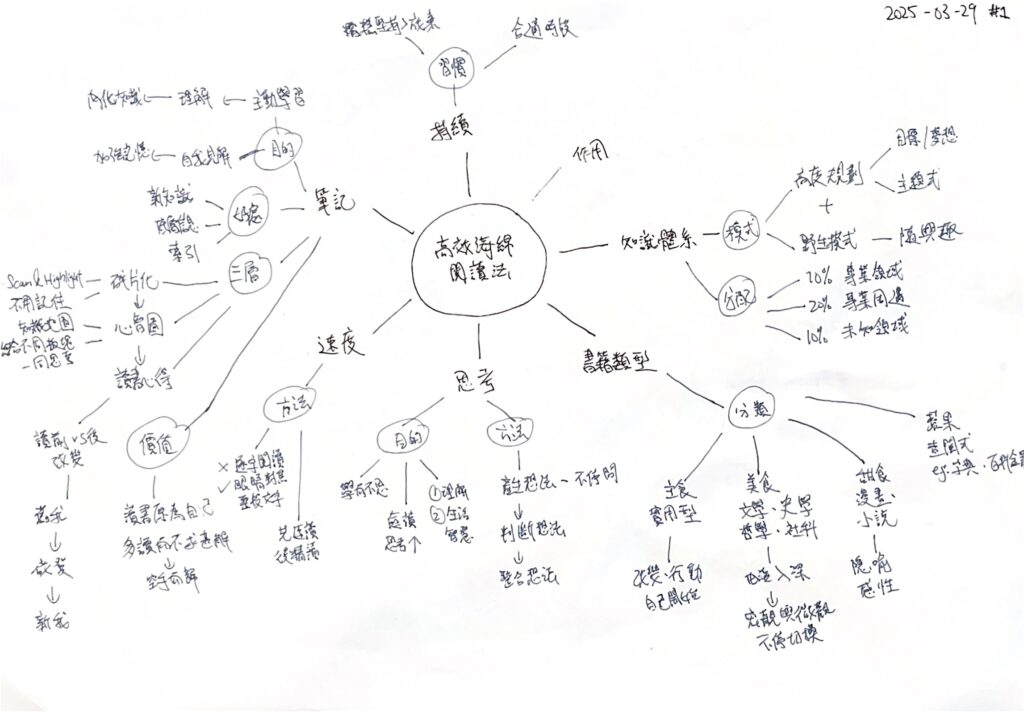 2025-03-29 #1
合適時段
習慣
持續
作用
高效海綿
閱讀法
筆記
目的
主動學習
理解
內化知識
自我見解
加強記憶
好處
新知識
索引
三層
碎片化
Scan & Highlight
不用記住
心智圖
知識地圖
一同思考
讀書心得
讀前 vs 後
改變
舊我
改變
新我
價值
讀書應為自己
空有前解
速度
方法
× 逐字閱讀
✓ 眼睛對焦
重校文字
先速讀
後精讀
思考
目的
學而不思
處讀
思考↑
① 理解
② 生活
智慧
方法
產生想法 ~ 不停問
判斷想法
整合想法
知識體系
模式
高度規劃
目標/夢想
主題式
+
野生模式
隨興趣
分配
70% 專業領域
20% 專業周邊
10% 未知領域
書籍類型
分類
主食
實用型
改變·行動
自己開始
美食
文學·史學
哲學·社科
由淺入深
宏觀與微觀
不停切換
甜食
漫畫·
小說
隱喻
感性
蔬果
查閱式
eg. 字典·百科全書